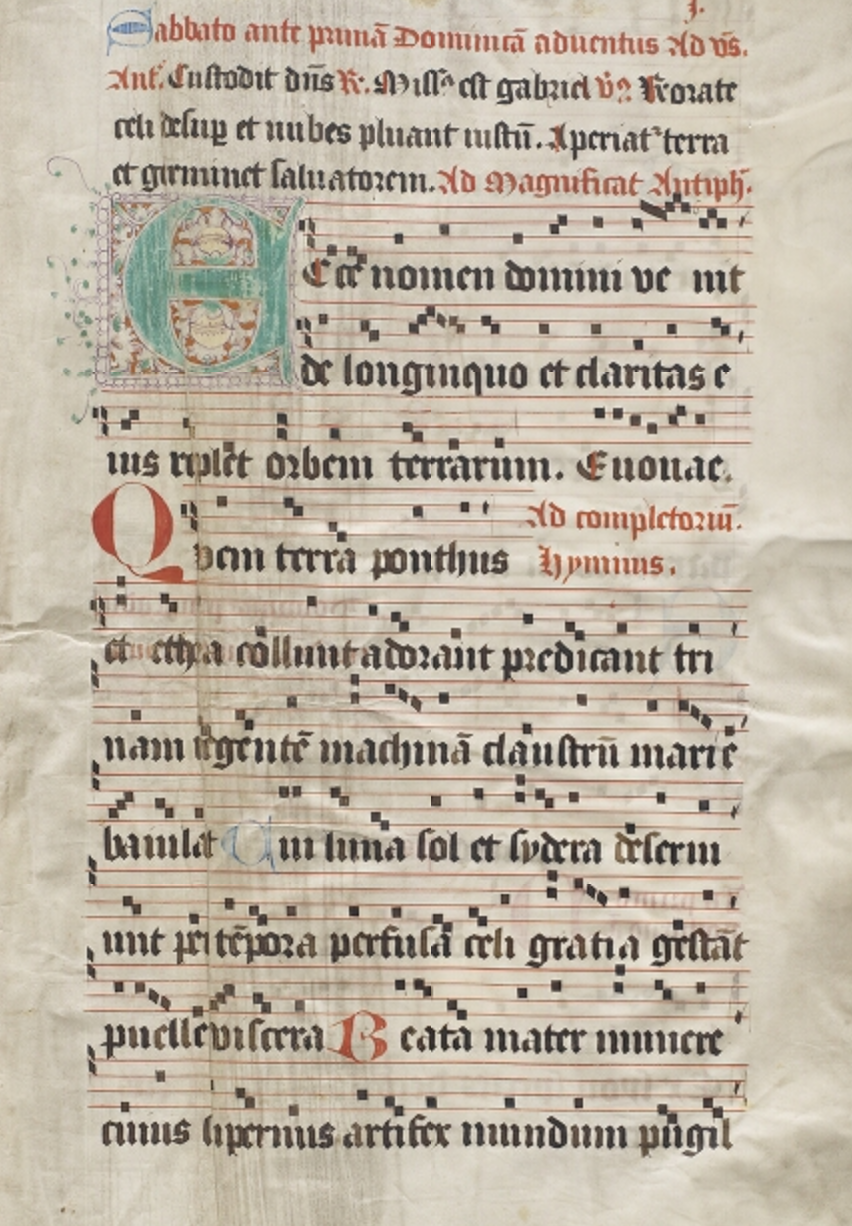 j.
Sabbato ante primā Dominicā aduentus Ad vs̄.
Ant̄. Custodit dn̄s R̄. Miss9 est gabriel v̄. Rorate
celi desup et nubes pluant iustū. Aperiat᷑ terra
et germinet saluatorem. Ad Magnificat Antiph̄.
Ecce nomen domini ve nit
de longinquo et claritas e
ius replet orbem terrarum. Euouae.
Ad completoriū.
Quem terra ponthus Hymnus.
et ethera collunt adorant predicant tri
nam regentē machinā claustrū marie
baiulat Cui luna sol et sydera deserui
unt per tēpora perfusa celi gratia gestāt
puelle viscera Beata mater munere
cuius supernus artifex mundum pugil